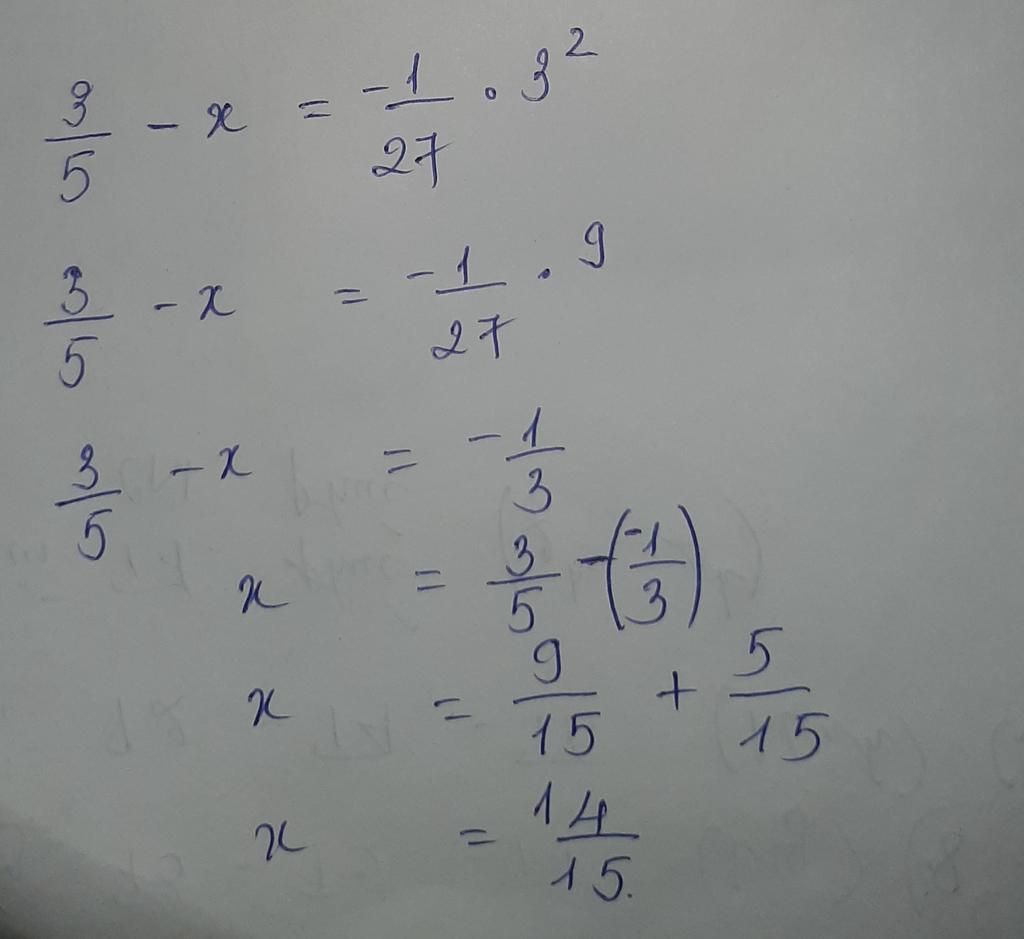 3/5 - x = -1/27 . 3²
3/5 - x = -1/27 . 9
3/5 - x = -1/3
x = 3/5 - (-1/3)
x = 9/15 + 5/15
x = 14/15.